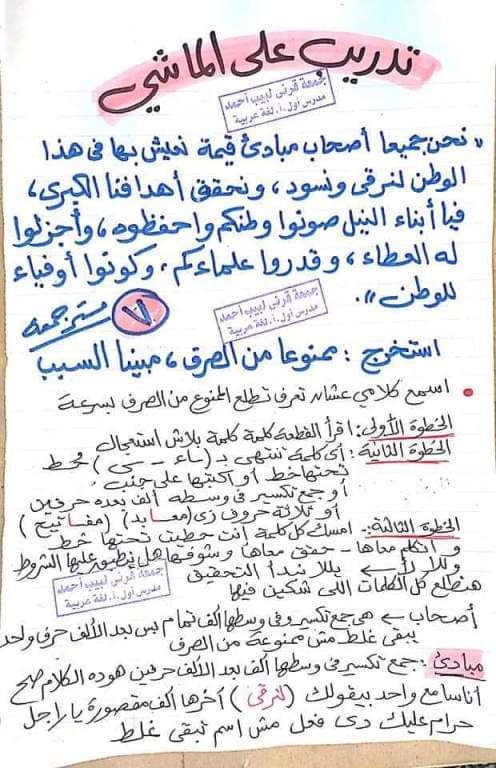 تدريب على الماشي
جمعة قرني لبيب أحمد
مدرس أول.أ. لغة عربية
" نحن جميعا أصحاب مبادئ قيمة نعيش بها في هذا
الوطن لنرقى ونسود ، ونحقق أهدافنا الكبرى ،
فيا أبناء النيل صونوا وطنكم واحفظوه ، وأجزلوا
له العطاء ، وقدروا علماءكم . وكونوا أوفياء
للوطن ".
٧
مستر جمعة
جمعة قرني لبيب أحمد
مدرس أول.أ. لغة عربية
استخرج : ممنوعا من الصرف ، مبينا السبب
اسمع كلامي عشان تعرف تطلع الممنوع من الصرف بسرعة
الخطوة الأولى : اقرأ القطعة كلمة كلمة بلاش استعجال
الخطوة الثانية : أي كلمة تنتهي بـ ( ـاء - ـى ) حط
تحتها خط أو اكتبها على جنب
أو جمع تكسير في وسطه ألف بعده حرفين
أو ثلاثة حروف زي ( معابد ) ( مفاتيح )
الخطوة الثالثة : امسك كل كلمة انت حطيت تحتها خط
واتكلم معاها - حقق معاها وشوفها هل ينطبق عليها الشروط
وللا لأ ← يللا نبدأ التحقيق
جمعة قرني لبيب أحمد
مدرس أول.أ. لغة عربية
هنطلع كل الكلمات اللي شكين فيها
أصحاب ← هي جمع تكسير وفي وسطها ألف تمام بس بعد الألف حرف واحد
يبقى غلط مش ممنوعة من الصرف
مبادئ : جمع تكسير في وسطها ألف بعد الألف حرفين هو ده الكلام صح
أنا سامع واحد بيقولك ( لنرقى ) آخرها ألف مقصورة يا راجل
حرام عليك دي فعل مش اسم تبقى غلط